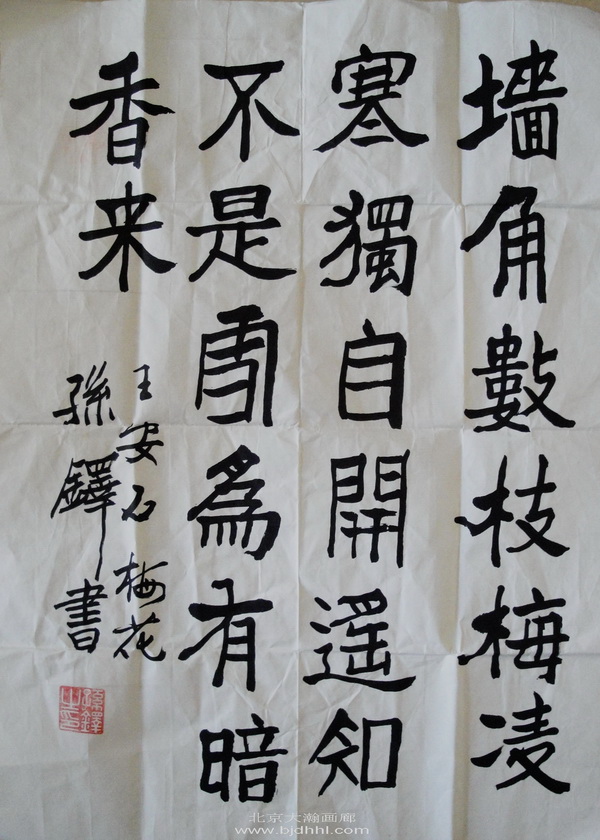 墻角數枝梅凌
寒獨自開遥知
不是雪為有暗
香来
王安石 梅花
孫鐸書
孫鐸之印
北京大瀚画廊
www.bjdhhl.com